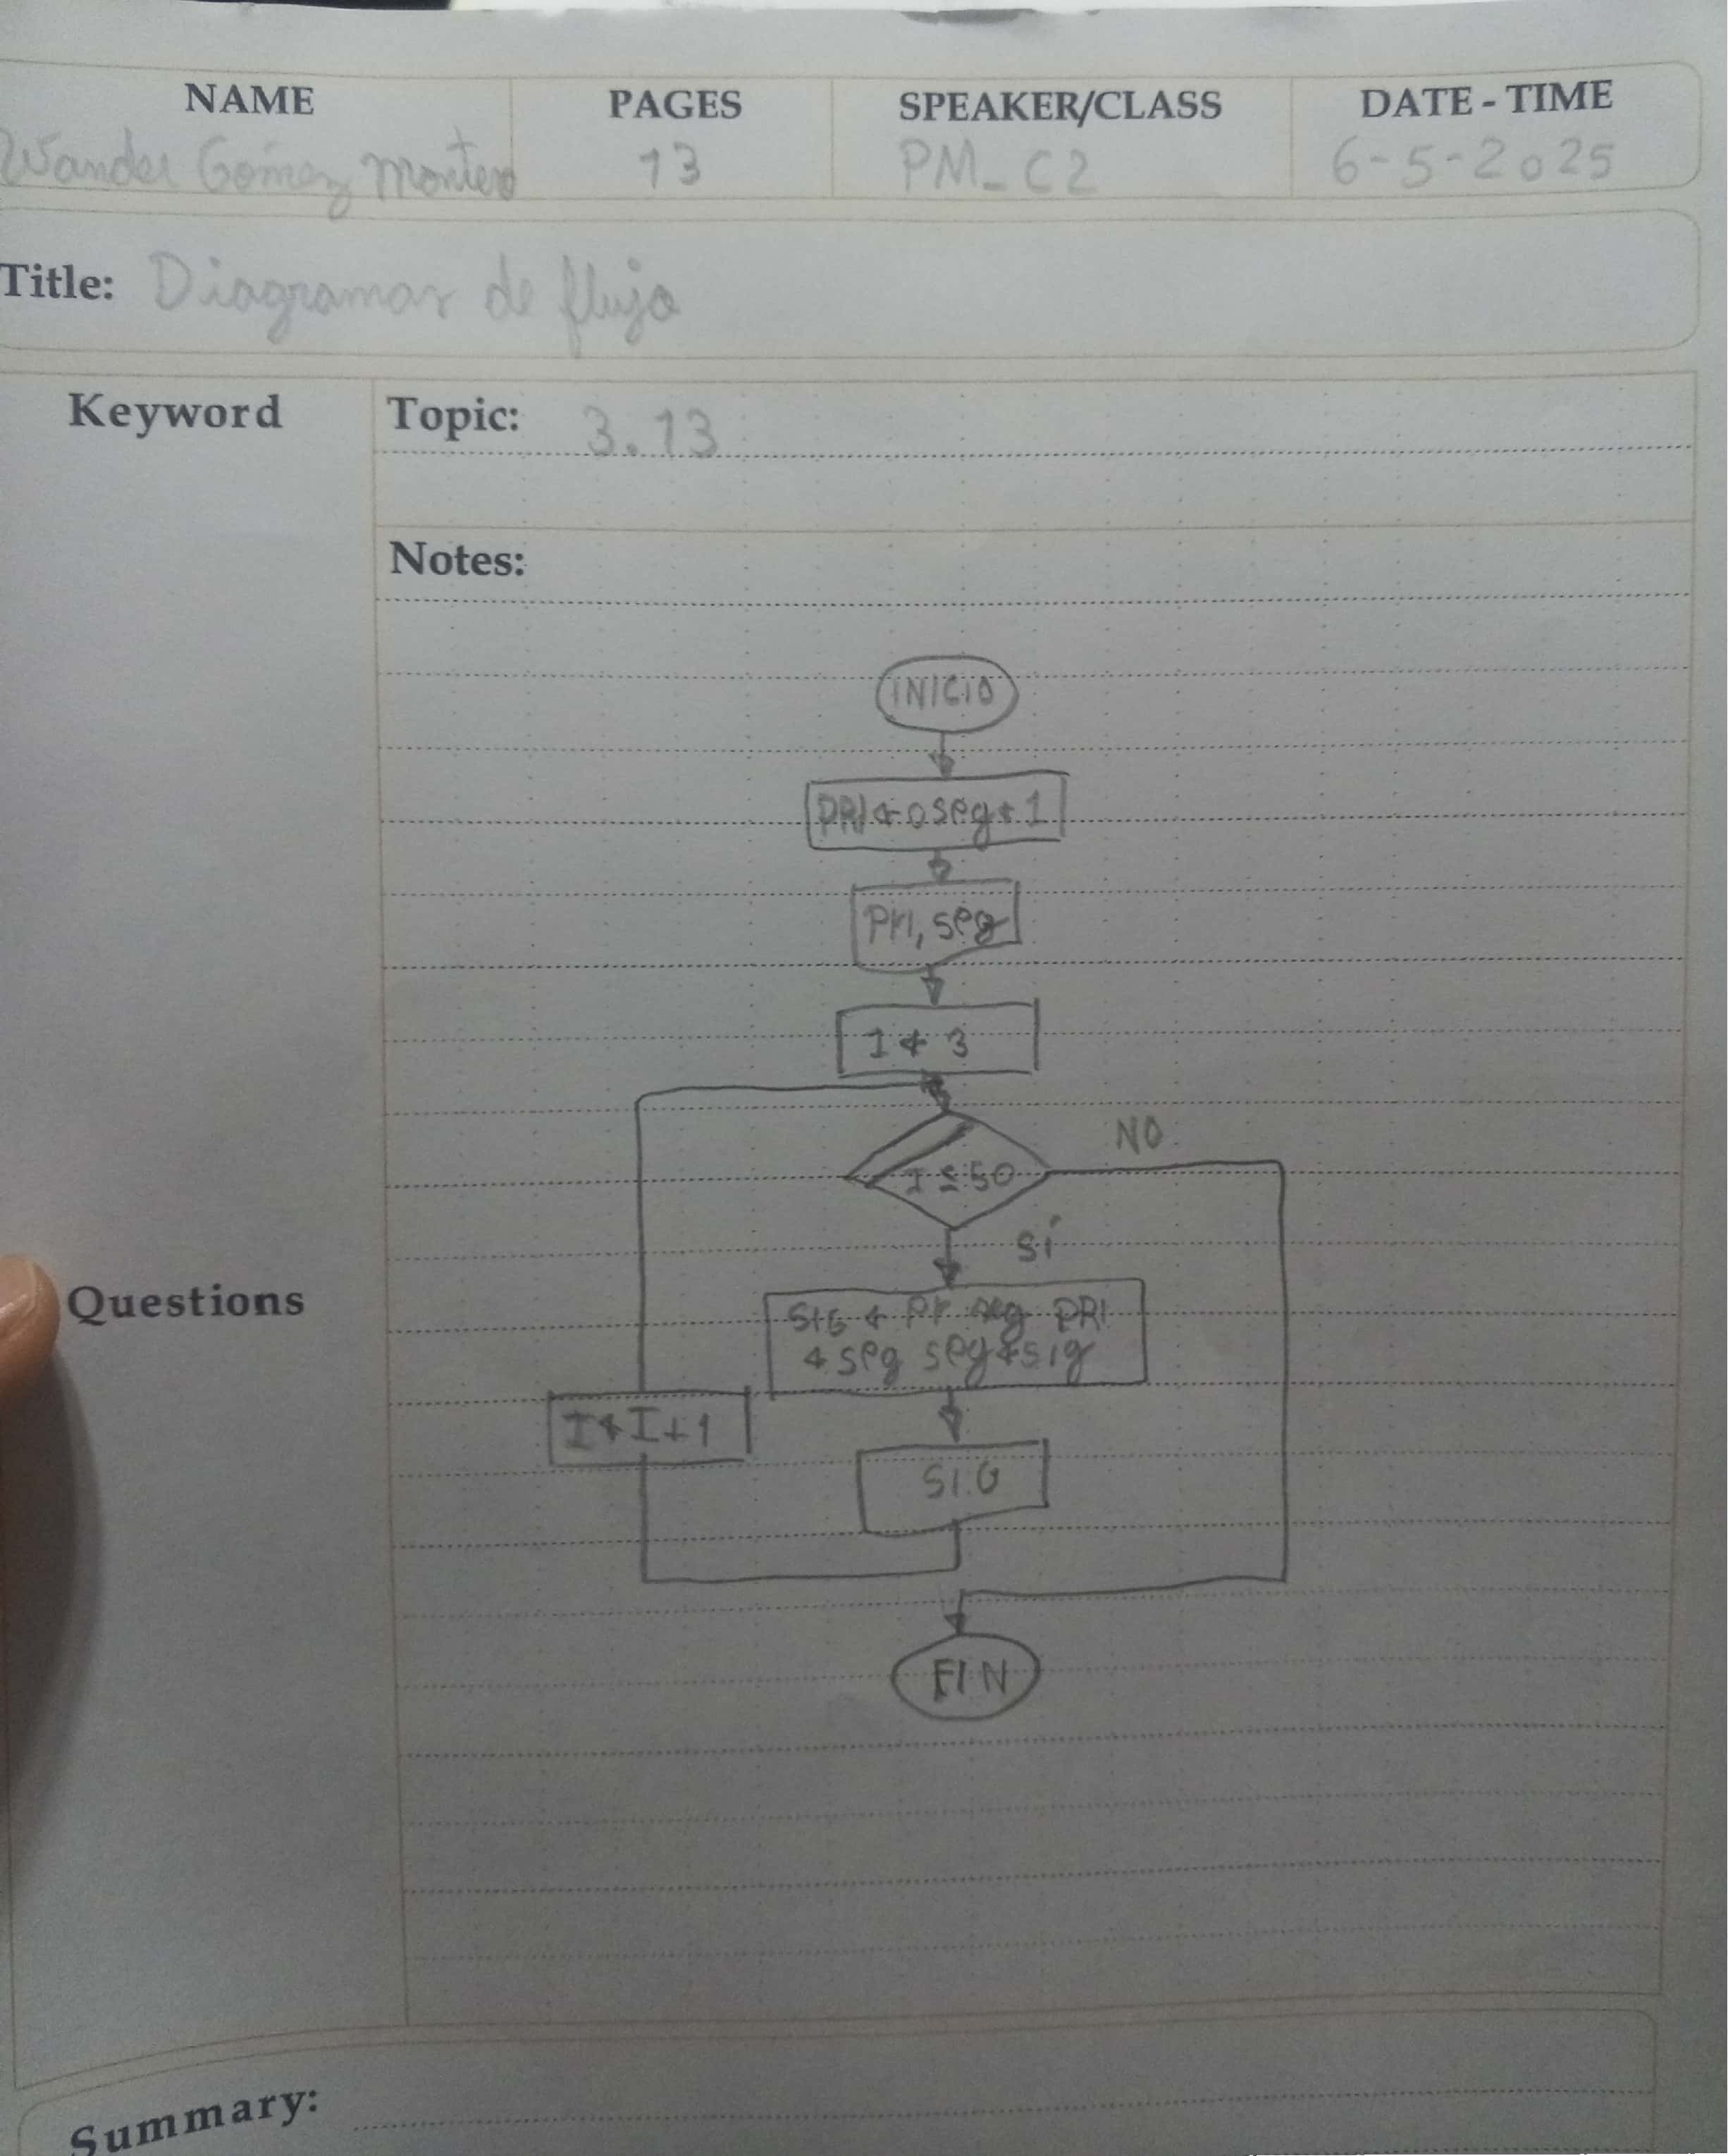 NAME PAGES SPEAKER/CLASS DATE - TIME
Wander Gómez Montero 13 PM_C2 6-5-2025
Title: Diagramas de flujo
Keyword Topic: 3.13
Notes:
INICIO
PRI ← 0 seg ← 1
PRI, seg
I ← 3
NO
I ≤ 50
SÍ
SIG ← PR seg PRI
Questions
← seg seg ← sig
I ← I + 1
SIG
FIN
Summary: